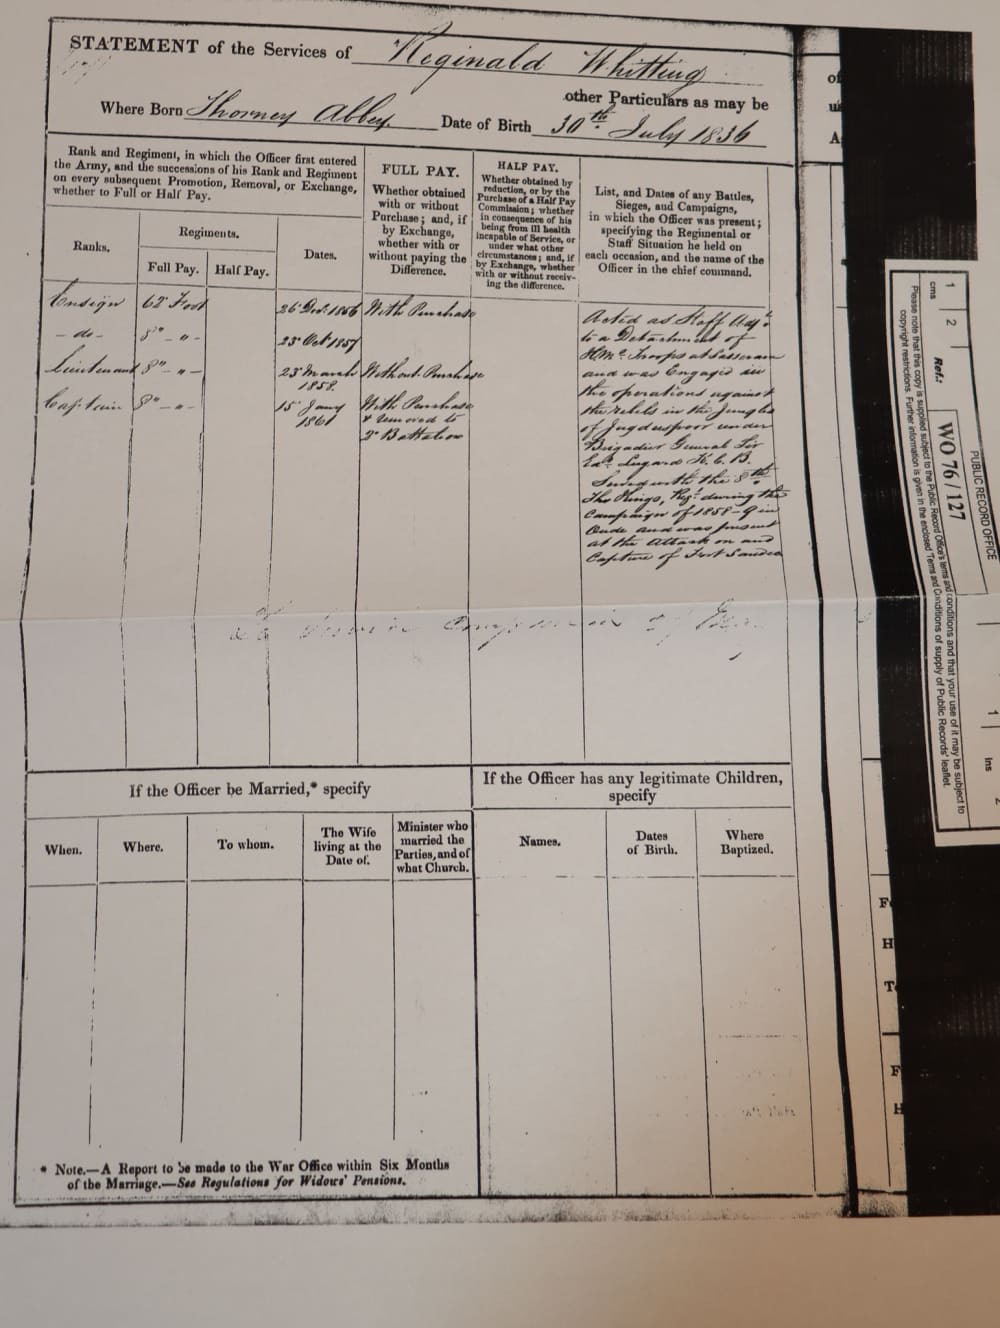 STATEMENT of the Services of Reginald Whitting
other Particulars as may be
Where Born Thorney Abbey Date of Birth 30th July 1836
Rank and Regiment, in which the Officer first entered
the Army, and the successions of his Rank and Regiment
on every subsequent Promotion, Removal, or Exchange,
whether to Full or Half Pay.
Ranks.
Regiments.
Full Pay.
Half Pay.
Dates.
FULL PAY.
Whether obtained
with or without
Purchase; and, if
by Exchange,
whether with or
without paying the
Difference.
HALF PAY.
Whether obtained by
reduction, or by the
Purchase of a Half Pay
Commission; whether
in consequence of his
being from ill health
incapable of Service, or
under what other
circumstances; and, if
by Exchange, whether
with or without receiv-
ing the difference.
List, and Dates of any Battles,
Sieges, and Campaigns,
in which the Officer was present;
specifying the Regimental or
Staff Situation he held on
each occasion, and the name of the
Officer in the chief command.
Ensign 62d Foot 26 Dec. 1856 With Purchase
- do - 8" - " - 23 Oct 1857
Lieutenant 8" - " - 23 March 1858 Without Purchase
Captain 8" - " - 15 Jany 1861 With Purchase
& removed to
2d Battalion
Acted as Staff Adjt
to a Detachment of
H.M's Troops at Sasseram
and was Engaged in
the operations against
the rebels in the Jungles
of Jugdespoor under
Brigadier General Sir
Edwd Lugard K.C.B.
Served with the 8th
The Kings, Regt during the
Campaign of 1858-9 in
Oude and was present
at the Attack on and
Capture of Fort Sandee
If the Officer be Married,* specify
When.
Where.
To whom.
The Wife
living at the
Date of.
Minister who
married the
Parties, and of
what Church.
If the Officer has any legitimate Children,
specify
Names.
Dates
of Birth.
Where
Baptized.
* Note.—A Report to be made to the War Office within Six Months
of the Marriage.—See Regulations for Widows' Pensions.
PUBLIC RECORD OFFICE
1
2
cms
Ref.:
WO 76/127
1
ins
2
Please note that this copy is supplied subject to the Public Record Office's terms and conditions and that your use of it may be subject to
copyright restrictions. Further information is given in the enclosed 'Terms and Conditions of supply of Public Records' leaflet.